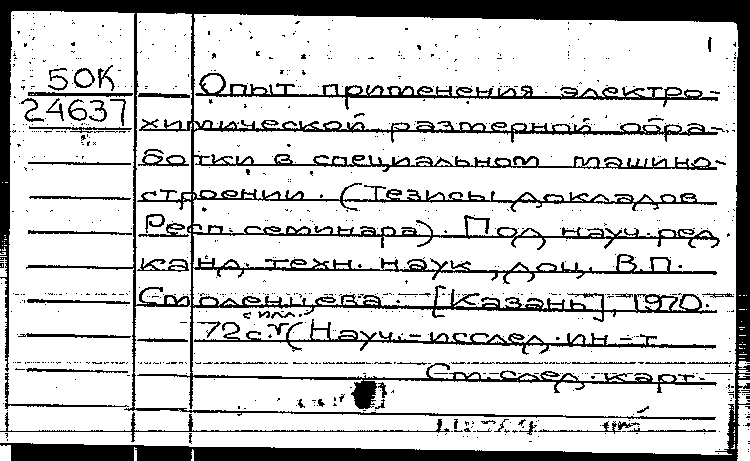 1
50К
24637
Опыт применения электро-
химической размерной обра-
ботки в специальном машино-
строении. (Тезисы докладов
Респ. семинара). Под науч. ред.
канд. техн. наук, доц. В.П.
Смоленцева. [Казань], 1970.
с илл.
72с. (Науч.-исслед. ин-т
См. след. карт.